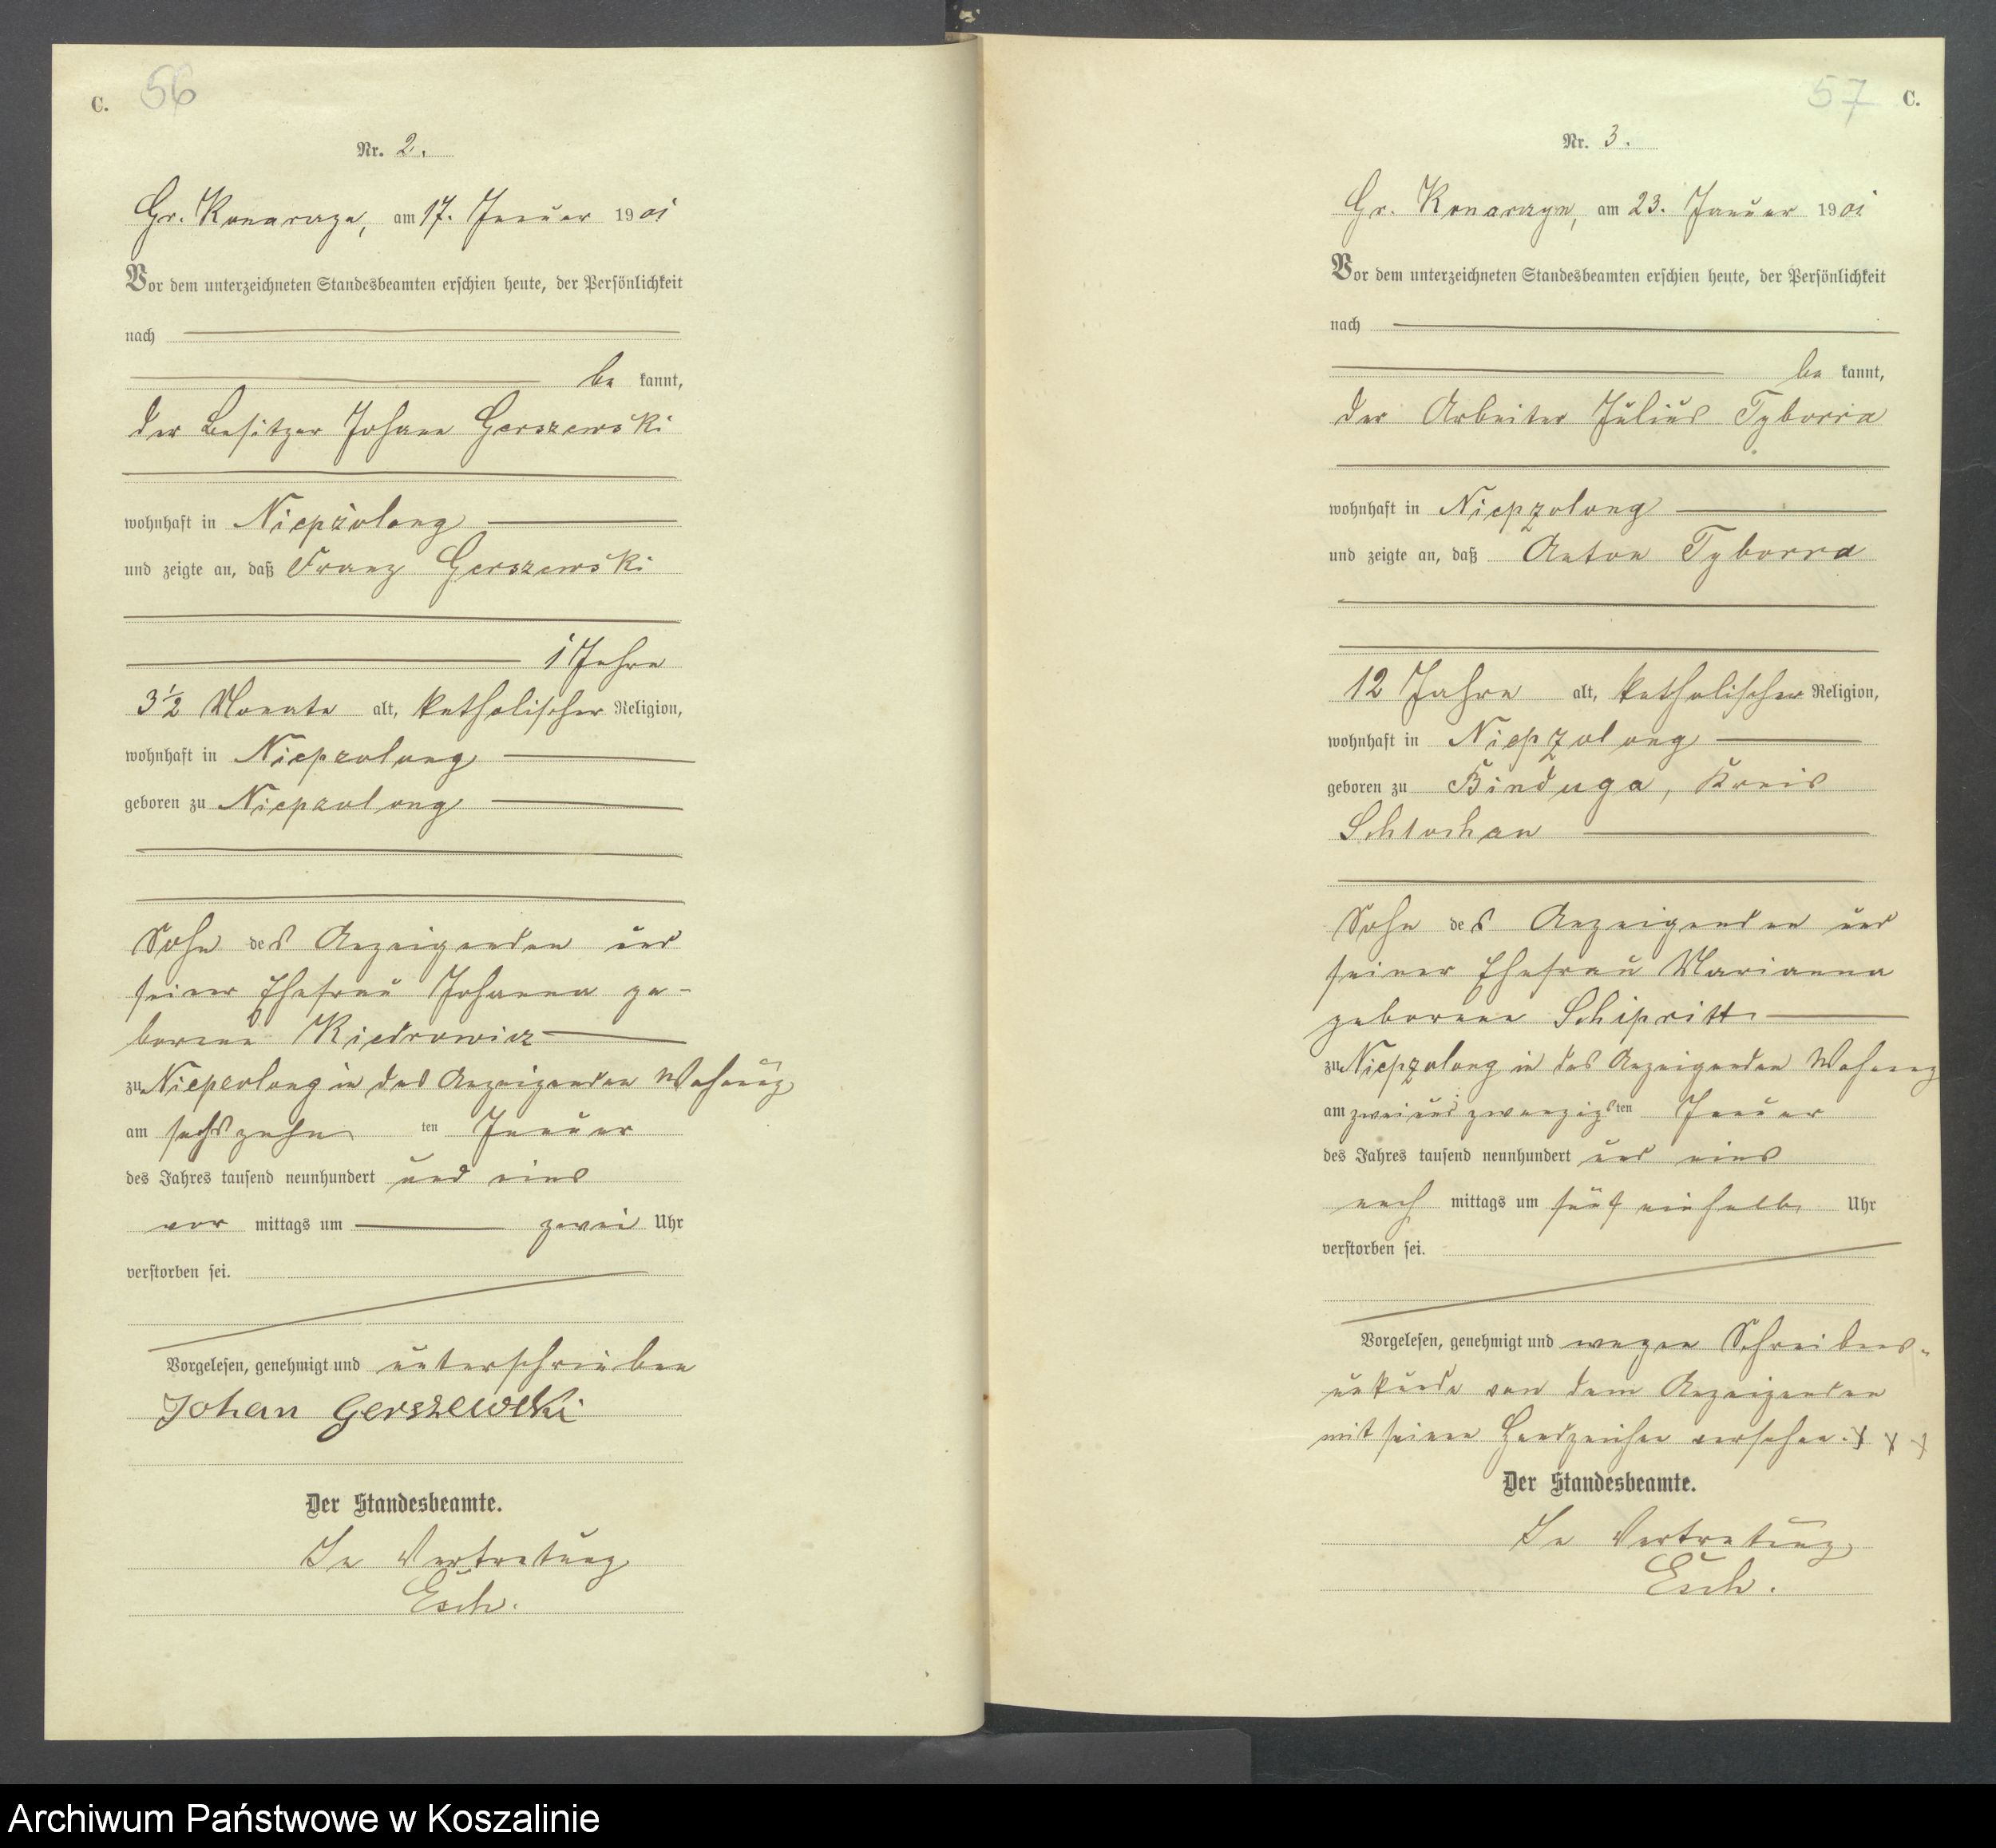 C. 56
Nr. 2.
Gr. Konarczyn, am 17. Januar 1901
Vor dem unterzeichneten Standesbeamten erschien heute, der Persönlichkeit
nach
be kannt,
der Besitzer Johann Gerszewski
wohnhaft in Niepszolong
und zeigte an, daß Franz Gerszewski
1 Jahre
3½ Monate alt, katholischer Religion,
wohnhaft in Niepszolong
geboren zu Niepszolong
Sohn des Anzeigenden und
seiner Ehefrau Johanna ge-
borene Kiedrowicz
zu Niepszolong in des Anzeigenden Wohnung
am sechszehn ten Januar
des Jahres tausend neunhundert und eins
vor mittags um zwei Uhr
verstorben sei.
Vorgelesen, genehmigt und unterschrieben
Johan Gerszewski
Der Standesbeamte.
In Vertretung
Esch.
57 C.
Nr. 3.
Gr. Konarczyn, am 23. Januar 1901
Vor dem unterzeichneten Standesbeamten erschien heute, der Persönlichkeit
nach
be kannt,
der Arbeiter Julius Tyborra
wohnhaft in Niepszolong
und zeigte an, daß Anton Tyborra
12 Jahre alt, katholischer Religion,
wohnhaft in Niepszolong
geboren zu Binduga, Kreis
Schlochau
Sohn des Anzeigenden und
seiner Ehefrau Marianna
geborene Schipritt
zu Niepszolong in des Anzeigenden Wohnung
am zweiundzwanzigsten Januar
des Jahres tausend neunhundert und eins
nach mittags um fünf einhalb Uhr
verstorben sei.
Vorgelesen, genehmigt und wegen Schreibens-
unkunde von dem Anzeigenden
mit seinen Handzeichen versehen. + + +
Der Standesbeamte.
In Vertretung
Esch.
Archiwum Państwowe w Koszalinie